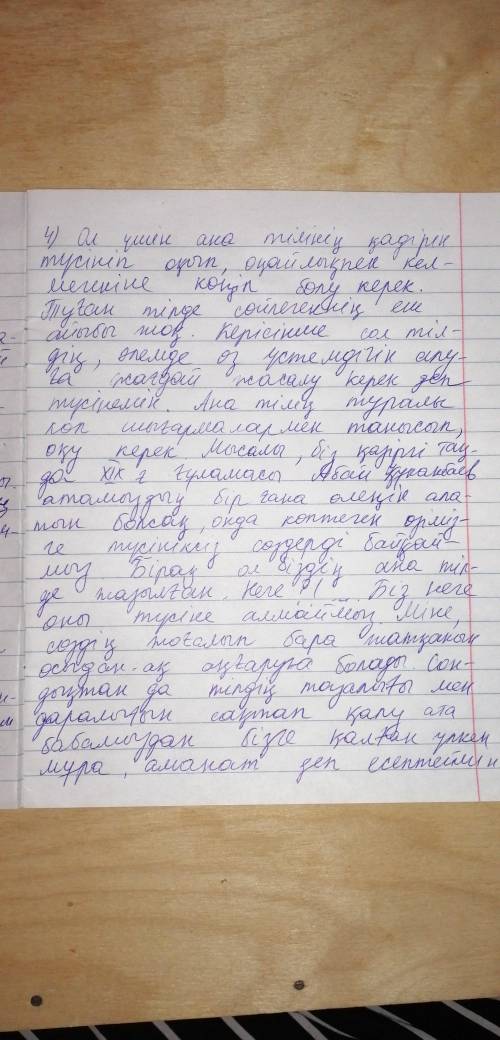 4) Ол үшін ана тілінің қадірін
түсініп оқып, оңайлықпен кел-
мегеніне көңіл бөлу керек.
Туған тілде сөйлегеннің еш
айыбы жоқ. Керісінше сол тіл-
дің, әлемде өз үстемдігін алу-
ға жағдай жасалу керек деп
түсінемін. Ана тілің туралы
көп шығармалармен танысып,
оқу керек Мысалы, біз қазіргі таң-
да XIX ғ ғұламасы Абай Құнанбаев
атамыздың бір ғана өлеңін ала-
тын болсақ, онда көптеген өзіміз-
ге түсініксіз сөздерді байқай-
мыз Бірақ ол біздің ана тіл-
де жазылған. Неге ?! Біз неге
оны түсіне алмаймыз. Міне,
сөздің жоғалып бара жатқанын
осыдан-ақ аңғаруға болады. Сон-
дықтан да тілдің тазалығы мен
даралығын сақтап қалу ата
бабамыздан бізге қалған үлкен
мұра, аманат деп есептеймін